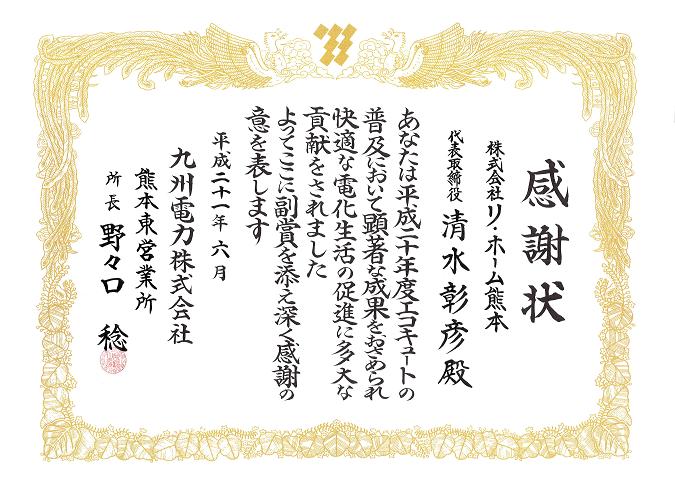 感謝状
株式会社リ・ホーム熊本
代表取締役 清水彰彦殿
あなたは平成二十年度エコキュートの
普及において顕著な成果をおさめられ
快適な電化生活の促進に多大な
貢献をされました
よってここに副賞を添え深く感謝の
意を表します
平成二十一年六月
九州電力株式会社
熊本東営業所
所長 野々口 稔